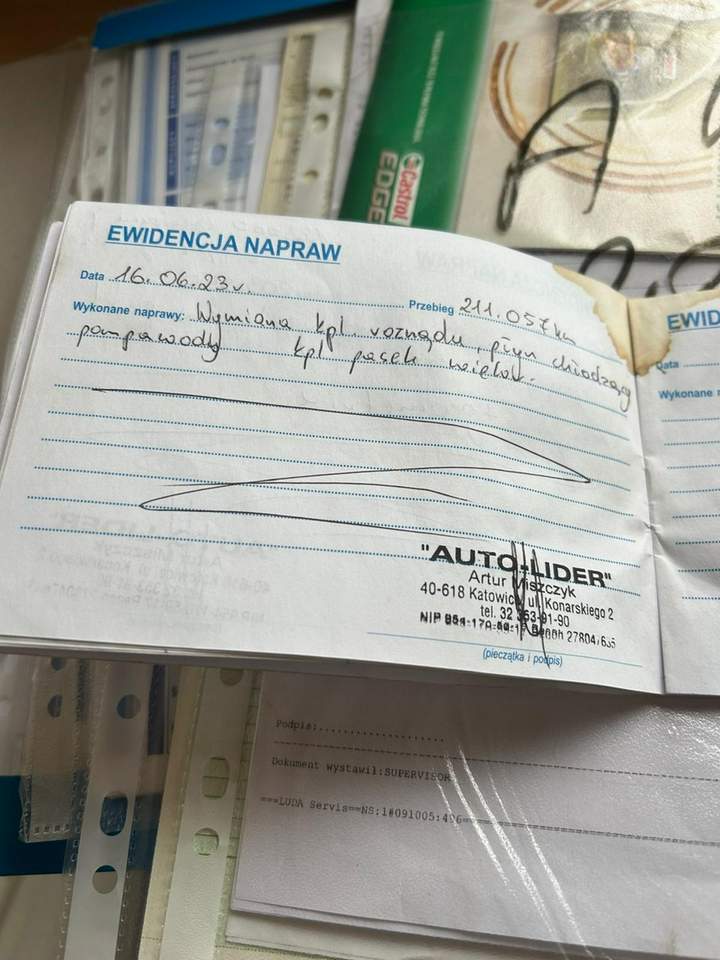 Castrol
EDGE
A
EWIDENCJA NAPRAW
Data 16.06.23r. Przebieg 211.057 km
Wykonane naprawy: Wymiana kpl. rozrządu, płyn chłodzący
pompa wody kpl pasek wielok.
"AUTO-LIDER"
Artur Miszczyk
40-618 Katowice, ul. Konarskiego 2
tel. 32 353-91-90
NIP 954-170
(pieczątka i podpis)
EWID
Data
Wykonane n
Podpis:....................
Dokument wystawił:SUPERVISOR
===LUDA Servis==NS:1#091005:496